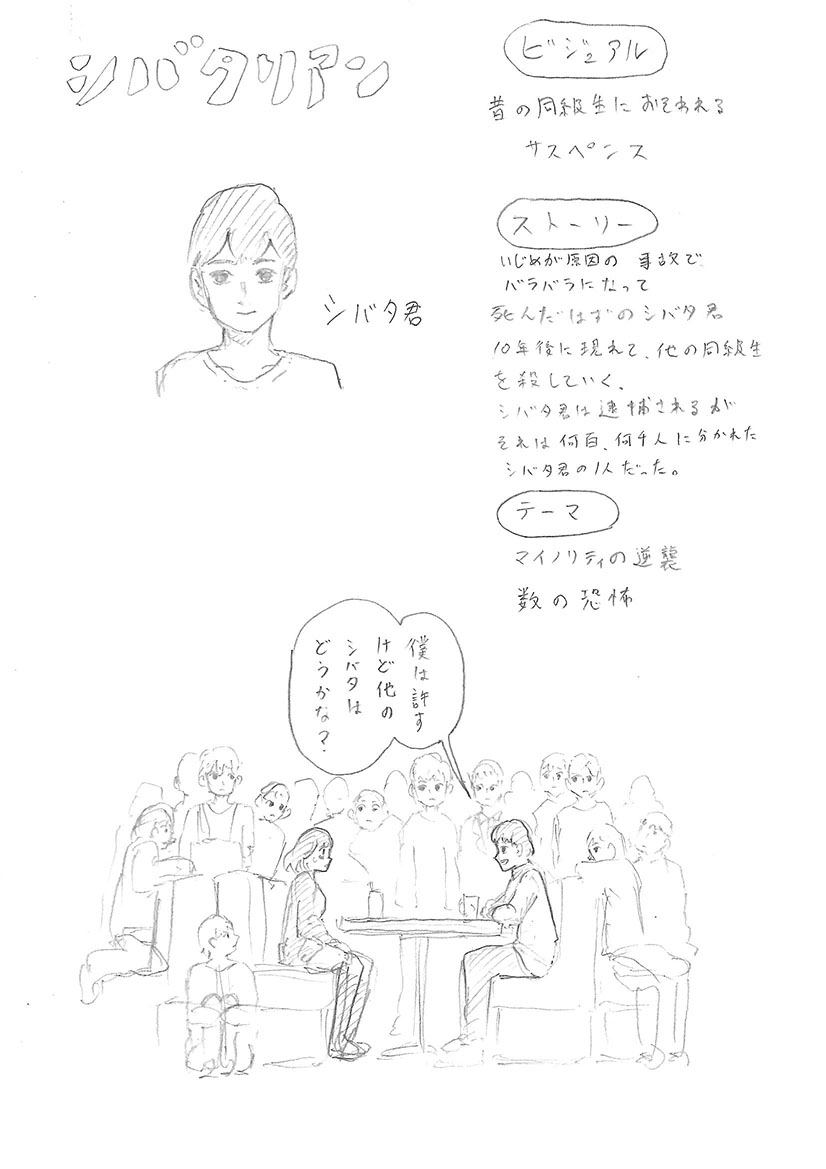 シバタリアン
シバタ君
ビジュアル
昔の同級生におそわれる
サスペンス
ストーリー
いじめが原因の 事故で
バラバラになって
死んだはずのシバタ君
10年後に現れて、他の同級生
を殺していく、
シバタ君は逮捕されるが
それは何百、何千人に分かれた
シバタ君の1人だった。
テーマ
マイノリティの逆襲
数の恐怖
僕は許す
けど他の
シバタは
どうかな?